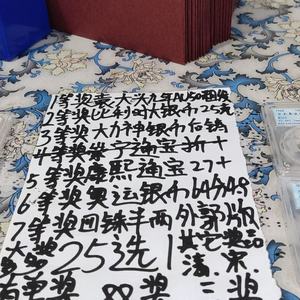 1等奖袁大头九年AU50粗发
2等奖比利时大银币25克
3等奖大力神银币后铸
4等奖崇宁淘宝折十
5等奖康熙淘宝27+
6等奖奥运银币64分48
7等奖四铢半两外郭版
大奖 25选1 其它奖品
清宋
有重奖 88奖 二奖